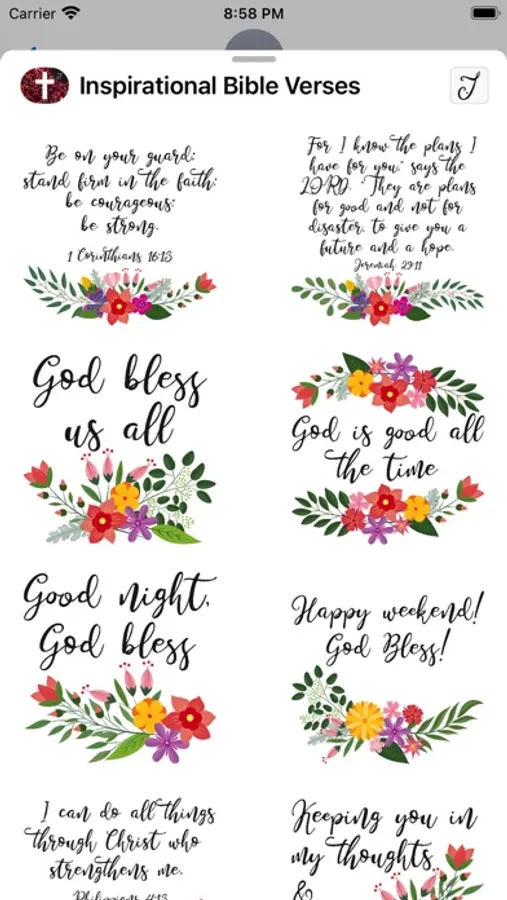 Carrier 8:58 PM
Inspirational Bible Verses
J
Be on your guard;
stand firm in the faith;
be courageous;
be strong.
1 Corinthians 16:13
For I know the plans I
have for you," says the
LORD. "They are plans
for good and not for
disaster, to give you a
future and a hope.
Jeremiah 29:11
God bless
us all
God is good all
the time
Good night,
God bless
Happy weekend!
God Bless!
I can do all things
through Christ who
strengthens me.
Philippians 4:13
Keeping you in
my thoughts
&